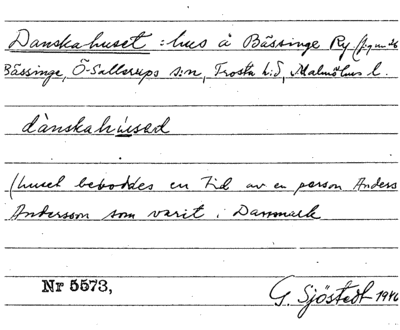 Danskahuset : hus å Bässinge Ry
Bässinge, Ö-Sallerups s:n, Frosta h:d, Malmöhus l.
dànskahúsed
(huset beboddes en tid av en person Anders
Andersson som varit i Danmark
Nr 5573,
G. Sjöstedt 1946